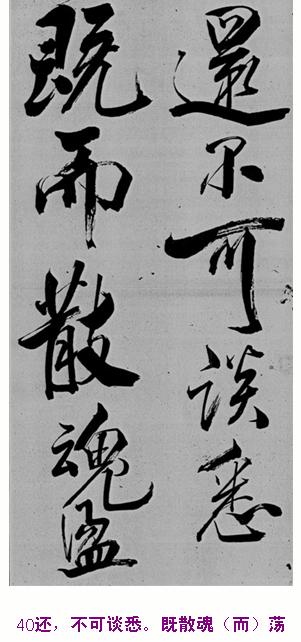 還不可談悉
既而散魂盪
40还，不可谈悉。既散魂（而）荡